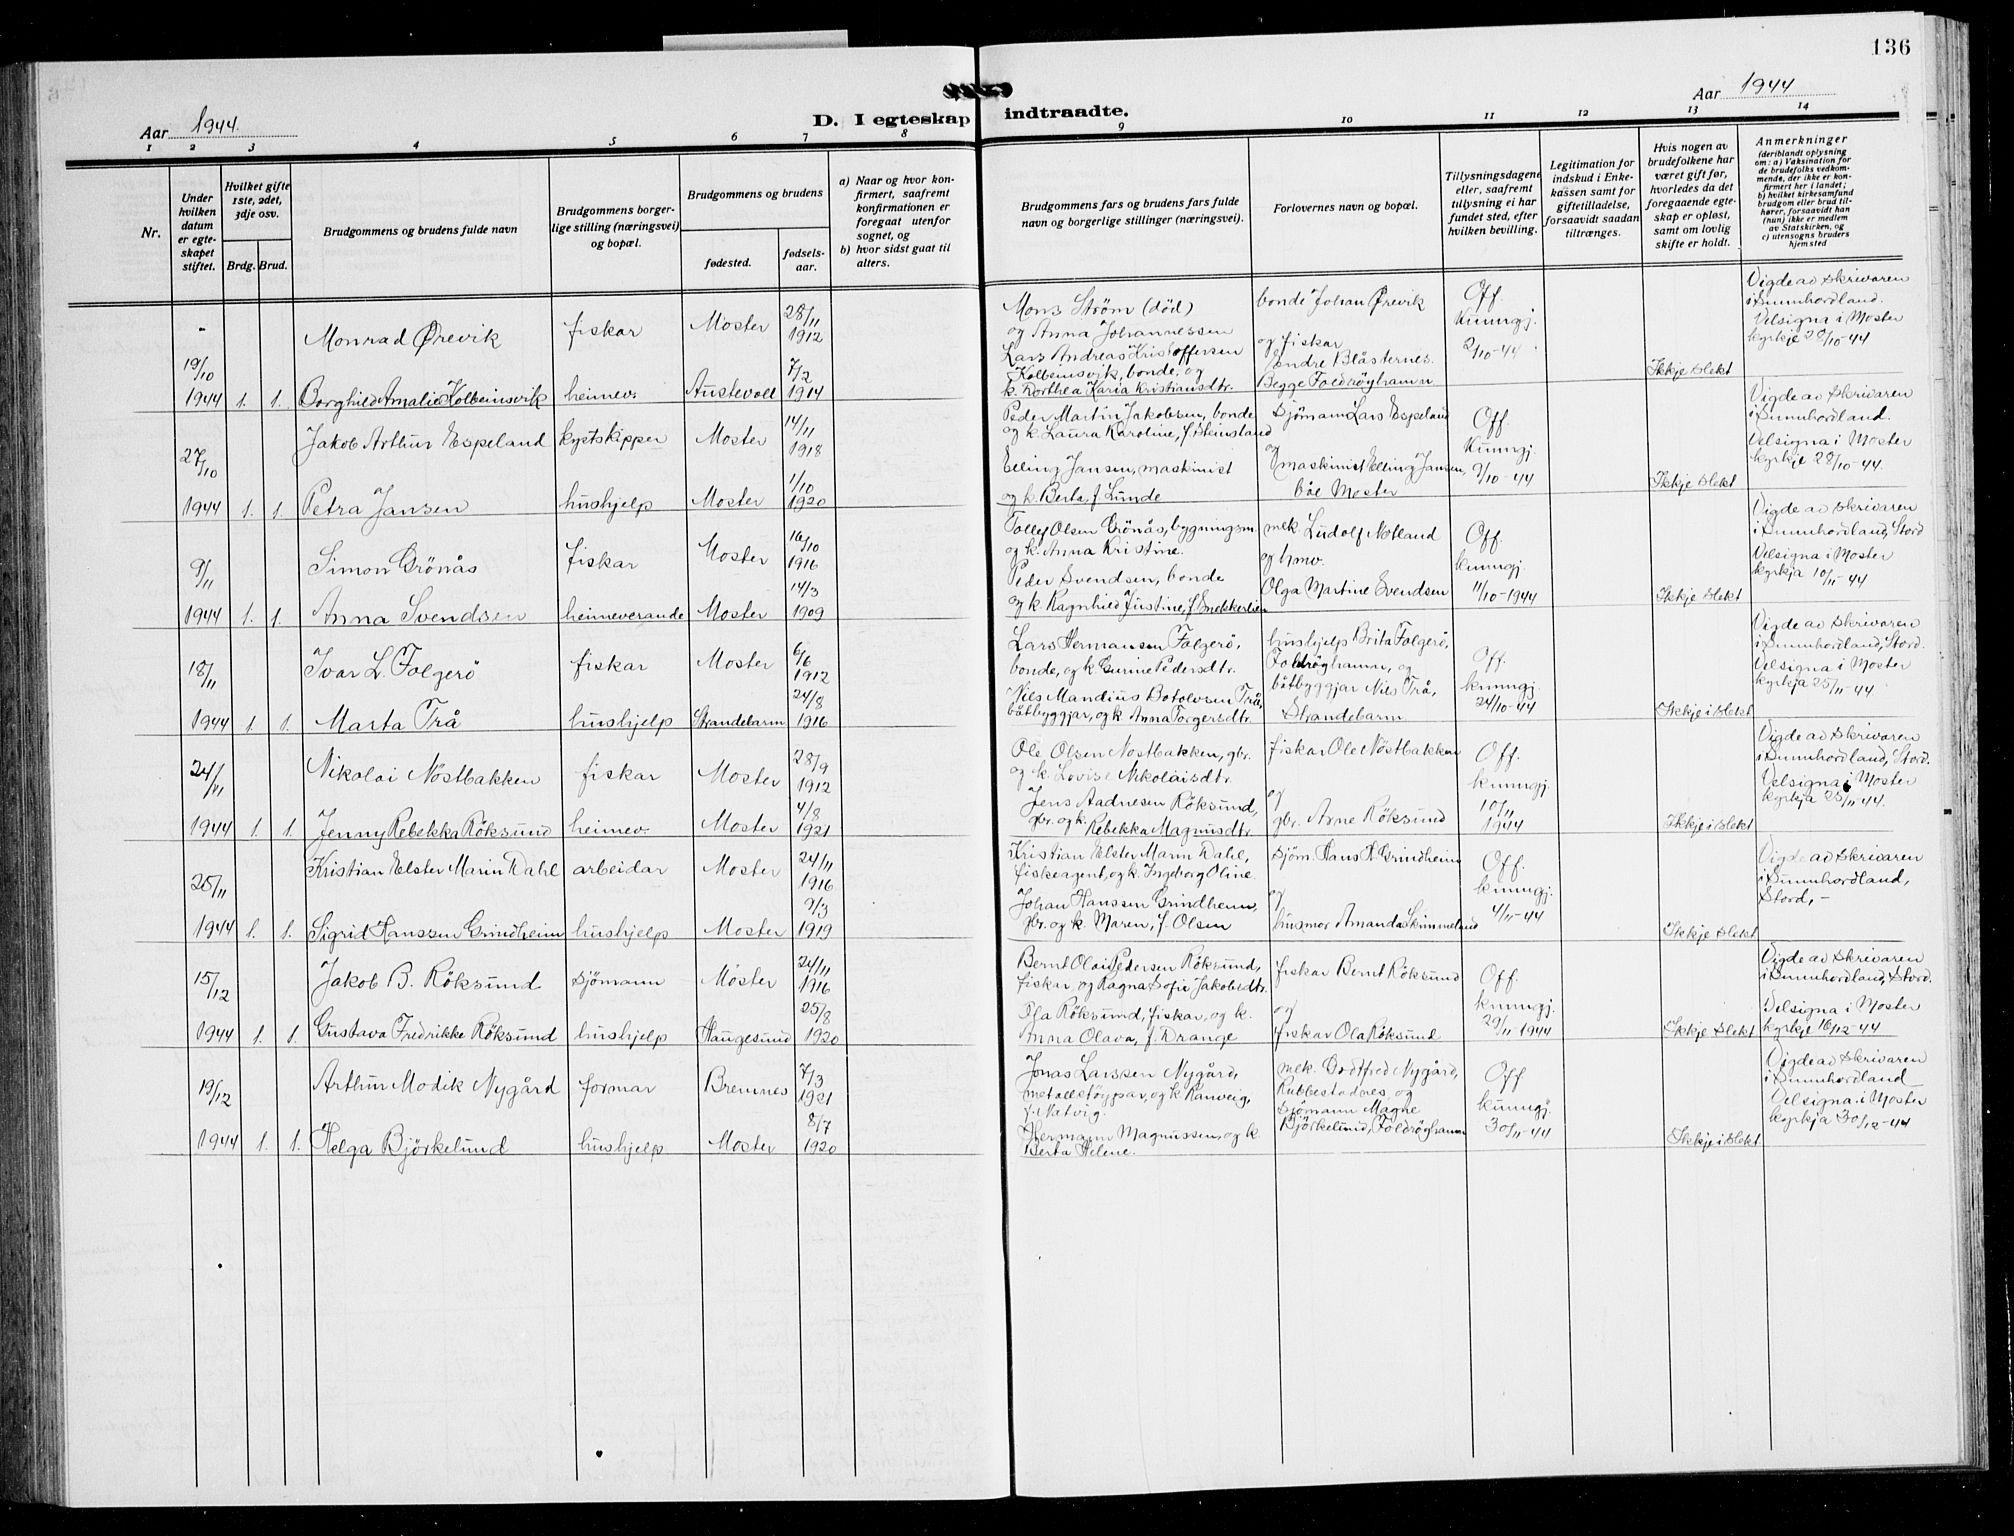 136
Aar 1944.
D. I egteskap indtraadte.
Aar 1944
1 2 3 4 5 6 7 8 9 10 11 12 13 14
Nr.
Under hvilken datum er egteskapet stiftet.
Hvilket gifte 1ste, 2det, 3dje osv.
Brdg. Brud.
Brudgommens og brudens fulde navn
Brudgommens borgerlige stilling (næringsvei) og bopæl.
Brudgommens og brudens
fødested.
fødselsaar.
a) Naar og hvor konfirmert, saafremt konfirmationen er foregaat utenfor sognet, og
b) hvor sidst gaat til alters.
Brudgommens fars og brudens fars fulde navn og borgerlige stillinger (næringsvei).
Forlovernes navn og bopæl.
Tillysningsdagene eller, saafremt tillysning ei har fundet sted, efter hvilken bevilling.
Legitimation for indskud i Enkekassen samt for giftetilladelse, forsaavidt saadan tiltrænges.
Hvis nogen av brudefolkene har været gift før, hvorledes da det foregaaende egteskap er opløst, samt om lovlig skifte er holdt.
Anmerkninger
(deriblandt oplysning om: a) Vaksination for de brudefolks vedkommende, der ikke er konfirmert her i landet; b) hvilket kirkesamfund brudgom eller brud tilhører, forsaavidt han (hun) ikke er medlem av Statskirken, og c) utensogns bruders hjemsted
Monrad Ørevik fiskar Moster 28/11 1912
Mons Strøm (död) og Anna Johannessen
19/10 1944 1. 1. Borghild Amalie Kolbeinsvik heimev. Austevoll 7/2 1914
Lars Andreas Kristoffersen Kolbeinsvik, bonde, og k. Dorthea Karia Kristiansdtr.
bonde Johan Ørevik og fiskar Endre Blåsternes. Begge Foldrøyhamn
Off. kunngj. 2/10-44
Ikkje slekt
Vigde av skrivaren i Sunnhordland. Velsigna i Moster kyrkje 20/10-44
27/10 Jakob Arthur Espeland kystskipper Moster 14/11 1918
Peder Martin Jakobsen, bonde og k. Laura Karoline, f. Steinsland
1944 1. 1. Petra Jansen hushjelp Moster 1/10 1920
Elling Jansen, maskinist og k. Berta, f. Lunde
sjömann Lars Espeland og maskinist Elling Jansen, båe Moster
Off. kunngj. 9/10-44
Ikkje slekt
Vigde av skrivaren i Sunnhordland. Velsigna i Moster kyrkje 28/10-44.
9/11 Simon Grönås fiskar Moster 16/10 1916
Tolley Olsen Grönås, bygningsm. og k. Anna Kristine.
1944 1. 1. Anna Svendsen heimeverande Moster 14/3 1909
Peder Svendsen, bonde og k. Ragnhild Justine, f. Smekkerlien
mek. Ludolf Notland og hmv. Olga Martine Svendsen
Off. kunngj. 11/10-1944
Ikkje slekt
Vigde av skrivaren i Sunnhordland, Stord Velsigna i Moster kyrkja 10/11-44
18/11 Ivar L. Folgerö fiskar Moster 6/6 1912
Lars Hermansen Folgerö, bonde, og k. Gunne Pedersdtr.
1944 1. 1. Marta Trå hushjelp Strandebarm 24/8 1916
Nils Mandius Botolvsen Trå, båtbyggjar, og k. Anna Torgersdtr.
hushjelp Brita Folgerö, Foldröyhamn, og båtbyggjar Nils Trå, Strandebarm
Off. kunngj. 24/10-44
Ikkje i slekt
Vigde av skrivaren i Sunnhordland, Stord. Velsigna i Moster kyrkja 25/11-44
24/11 Nikolai Nöstbakken fiskar Moster 28/9 1912
Ole Olsen Nöstbakken, gbr. og k. Lovise Nikolaisdtr.
1944 1. 1. Jenny Rebekka Röksund heimev. Moster 4/8 1921
Jens Aadnesen Röksund, gbr. og k. Rebekka Magnusdtr.
fiskar Ole Nöstbakken og gbr. Arne Röksund
Off. kunngj. 10/11 1944
Ikkje i slekt
Vigde av skrivaren i Sunnhordland, Stord. Velsigna i Moster kyrkja 25/11-44.
25/11 Kristian Elster Marin Dahl arbeidar Moster 24/11 1916
Kristian Elster Marin Dahl, fiskeagent, og k. Ingeborg Oline.
1944 1. 1. Sigrid Hanssen Grindheim hushjelp Moster 9/3 1919
Johan Hanssen Grindheim, gbr. og k. Maren, f. Olsen
sjöm. Hans H. Grindheim og husmor Amanda Skimmeland
Off. kunngj. 4/11-44
Ikkje slekt
Vigde av skrivaren i Sunnhordland, Stord, -
15/12 Jakob B. Röksund sjömann Moster 24/11 1916
Bernt Olai Pedersen Röksund, fiskar, og Ragna Sofie Jakobsdtr.
1944 1. 1. Gustava Fredrikke Röksund hushjelp Haugesund 25/8 1920
Ola Röksund, fiskar, og k. Anna Olava, f. Drange
fiskar Bernt Röksund og fiskar Ola Röksund
Off. kunngj. 29/11-1944
Ikkje slekt
Vigde av skrivaren i Sunnhordland, Stord. Velsigna i Moster kyrkje 16/12-44
19/12 Arthur Modik Nygård formar Bremnes 7/3 1921
Jonas Larssen Nygård, metallstöypar, og k. Ranveig, f. Natvig.
1944 1. 1. Helga Björkelund hushjelp Moster 8/7 1920
Hermann Magnussen, og k. Berta Helene.
mek. Godtfred Nygård, Rubbestadnes, og sjömann Magne Björkelund, Foldröyhamn
Off kunngj. 30/11-44
Ikkje i slekt
Vigde av skrivaren i Sunnhordland Velsigna i Moster kyrkja 30/12-44